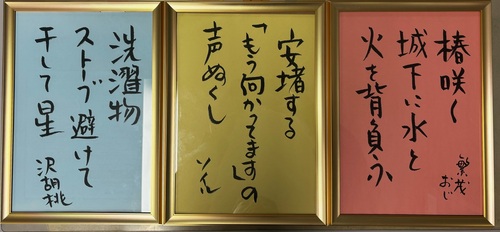 椿咲く
城下に水と
火を背負ふ
繁茂
おじ
安堵する
「もう向かってます」の
声ぬくし
ソル
洗濯物
ストーブ避けて
干して星
沢胡桃